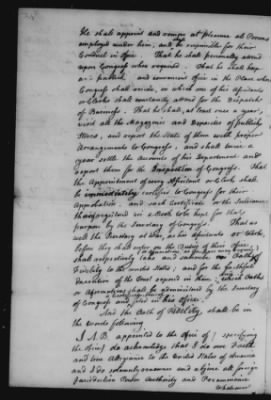 He shall appoint and remove at pleasure all Persons
employed under him, and be responsible for their
Conduct in Office. That he shall personally attend
upon Congress when required. That he shall keep
a public and convenient Office in the Place where
Congress shall reside, in which one of his Assistants
or Clerks shall constantly attend for the Dispatch
of Business. That he shall, at least once a year,
visit all the Magazines and Deposites of public
Stores, and report the State of them with proper
Arrangements to Congress; and shall twice a
year settle the accounts of his Department and
report them for the Inspection of Congress. That
the Appointment of every Assistant or Clerk shall
be immediately certified to Congress for their
approbation, and such Certificate or the Substance
thereof registered in a Book to be kept for that
purpose by the Secretary of Congress. That as
well the Secretary at War, as his Assistants or Clerks,
before they shall enter on the Duties of their Office,
shall respectively take and subscribe an Oath of
Fidelity to the united States; and for the faithful
Execution of the Trust reposed in them; which Oaths
or Affirmations shall be administered by the Secretary
of Congress and filed in his Office.
And the Oath of Fidelity, shall be in
the words following:
I A. B. appointed to the Office of
do acknowledge that I do owe Faith
and true Allegiance to the United States of America
and I do solemnly renounce and abjure all foreign
Jurisdiction Power Authority and Preeminence
whatsoever